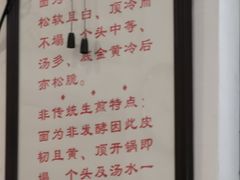 面为发酵、顶冷而
松软且白、
不塌 个头中等、
汤多、底金黄冷后
亦松脆。
非传统生煎特点：
面为非发酵因此皮
韧且黄、顶开锅即
塌 个头及汤水一